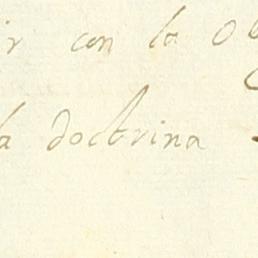 ir con la Ob
la doctrina